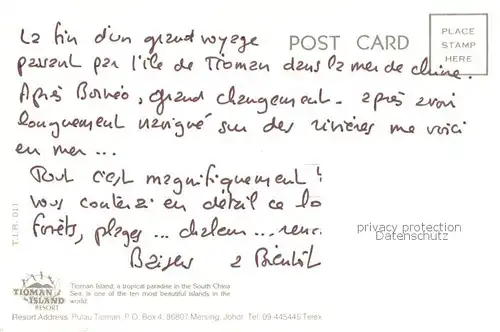 La fin d'un grand voyage
POST CARD
PLACE
STAMP
HERE
passant par l'île de Tioman dans la mer de chine.
Après Bornéo, grand changement - après avoir
longuement navigué sur des rivières me voici
en mer ...
Tout c'est magnifiquement
vous conterai en détail ce lo
forêts, plages ... chaleur ... renc
privacy protection
Datenschutz
Baisers à Bientôt
T.I.R. 011
TIOMAN
ISLAND
RESORT
Tioman Island, a tropical paradise in the South China
Sea, is one of the ten most beautiful islands in the
world.
Resort Address: Pulau Tioman, P.O. Box 4, 86807 Mersing, Johor. Tel: 09-445445 Telex